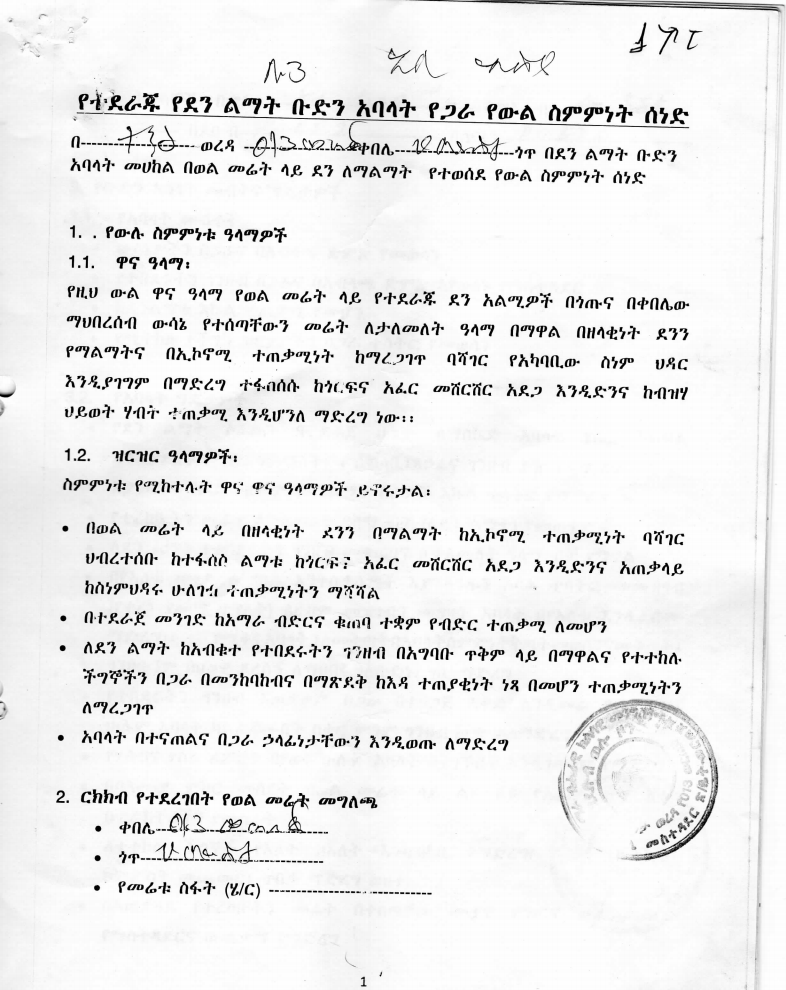 የተደራጁ የደን ልማት ቡድን አባላት የጋራ የውል ስምምነት ሰነድ
በ ወረዳ ቀበሌ ጎጥ በደን ልማት ቡድን
አባላት መሀከል በወል መሬት ላይ ደን ለማልማት የተወሰደ የውል ስምምነት ሰነድ
1. . የውሉ ስምምነቱ ዓላማዎች
1.1. ዋና ዓላማ፡
የዚህ ውል ዋና ዓላማ የወል መሬት ላይ የተደራጁ ደን አልሚዎች በጎጡና በቀበሌው
ማህበረሰብ ውሳኔ የተሰጣቸውን መሬት ለታለመለት ዓላማ በማዋል በዘላቂነት ደንን
የማልማትና በኢኮኖሚ ተጠቃሚነት ከማረጋገጥ ባሻገር የአካባቢው ስነም ህዳር
እንዲያገግም በማድረግ ተፋሰሱ ከጎርፍና አፈር መሸርሸር አደጋ እንዲድንና ከብዝሃ
ህይወት ሃብት ተጠቃሚ እንዲሆንለ ማድረግ ነው፡፡
1.2. ዝርዝር ዓላማዎች፡
ስምምነቱ የሚከተሉት ዋና ዋና ዓላማዎች ይኖሩታል፡
• በወል መሬት ላይ በዘላቂነት ደንን በማልማት ከኢኮኖሚ ተጠቃሚነት ባሻገር
ህብረተሰቡ ከተፋሰስ ልማቱ ከጎርፍና አፈር መሸርሸር አደጋ እንዲድንና አጠቃላይ
ከስነምህዳሩ ሁለገብ ተጠቃሚነትን ማሻሻል
• በተደራጀ መንገድ ከአማራ ብድርና ቁጠባ ተቋም የብድር ተጠቃሚ ለመሆን
• ለደን ልማት ከአብቁተ የተበደሩትን ገንዘብ በአግባቡ ጥቅም ላይ በማዋልና የተተከሉ
ችግኞችን በጋራ በመንከባከብና በማጽደቅ ከእዳ ተጠያቂነት ነጻ በመሆን ተጠቃሚነትን
ለማረጋገጥ
• አባላት በተናጠልና በጋራ ኃላፊነታቸውን እንዲወጡ ለማድረግ
2. ርክክብ የተደረገበት የወል መሬት መግለጫ
• ቀበሌ
• ጎጥ
• የመሬቱ ስፋት (ሄ/ር) ------------------------------
1